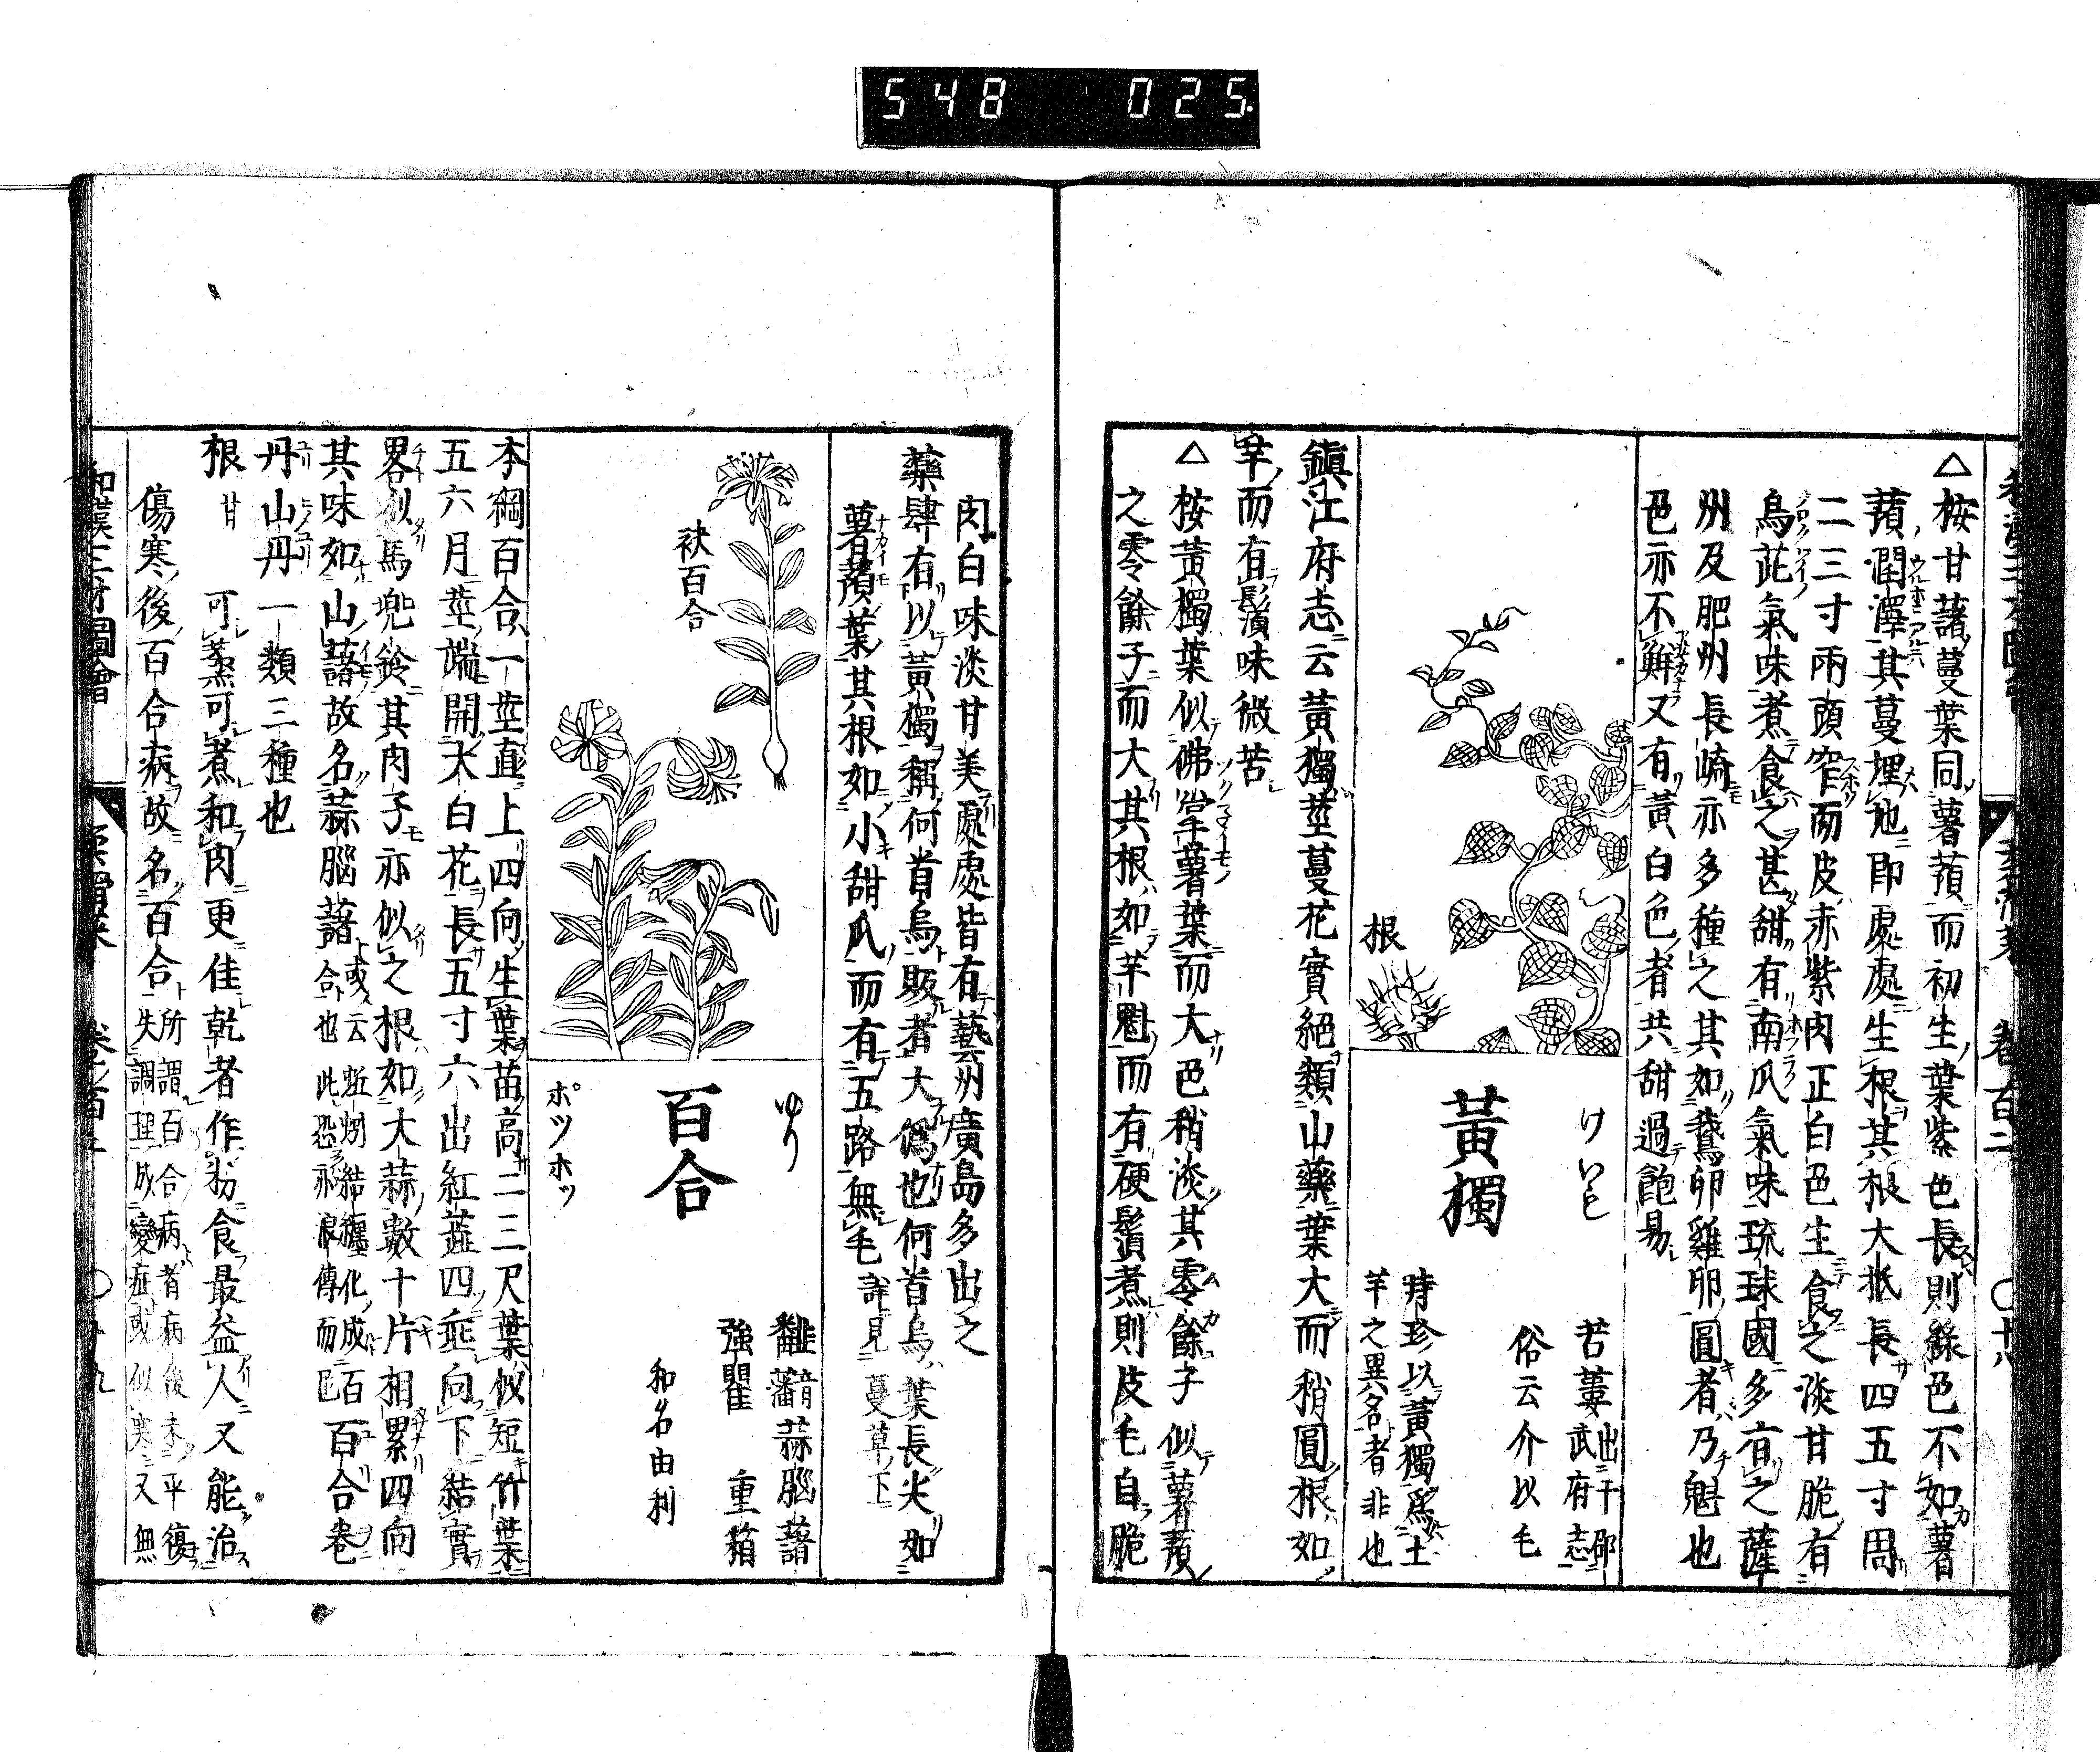 548 025
△按甘藷蔓葉同薯蕷而初生葉紫色長則綠色不如薯
蕷潤澤其蔓埋地即處處生根其根大抵長四五寸周
二三寸兩頭窄而皮赤紫肉正白色生食之淡甘脆有
烏芘氣味煮食之甚甜有南瓜氣味琉球國多有之薩
州及肥州長崎亦多種之其如鵞卵雞卵圓者乃魁也
色亦不鮮又有黃白色者共甜過飽易
根
けいも
黃獨
苦蕒武府志
俗云介以毛
時珍以黃獨爲土
芋之異名者非也
鎮江府志云黃獨莖蔓花實絕類山藥葉大而稍圓根如
芋而有鬚味微苦
△按黃獨葉似佛掌薯葉而大色稍淡其零餘子似薯蕷
之零餘子而大其根如芋魁而有硬鬚煮則皮毛自脆
肉白味淡甘美處處皆有藝州廣島多出之
藥肆有以黃獨稱何首烏販者大僞也何首烏葉長尖如
薯蕷葉其根如小甜瓜而有五路無毛詳見蔓草下
袂百合
ゆり
百合
ポツホツ
蒜腦藷
強瞿 重箱
和名由利
本綱百合一莖直上四向生葉苗高二三尺葉似短竹葉
五六月莖端開大白花長五寸六出紅蕋四垂向下結實
畧似馬兜鈴其肉子亦似之根如大蒜數十片相累四向
其味如山藷故名蒜腦藷或云蚯蚓結纏化成百合也此恐亦浪傳而已百合卷
丹山丹一類三種也
根 甘 可蒸可煮和肉更佳乾者作粉食最益人又能治
傷寒後百合病故名百合所謂百合病者病後未平復失調理成變症或似寒又無
和漢三才圖會